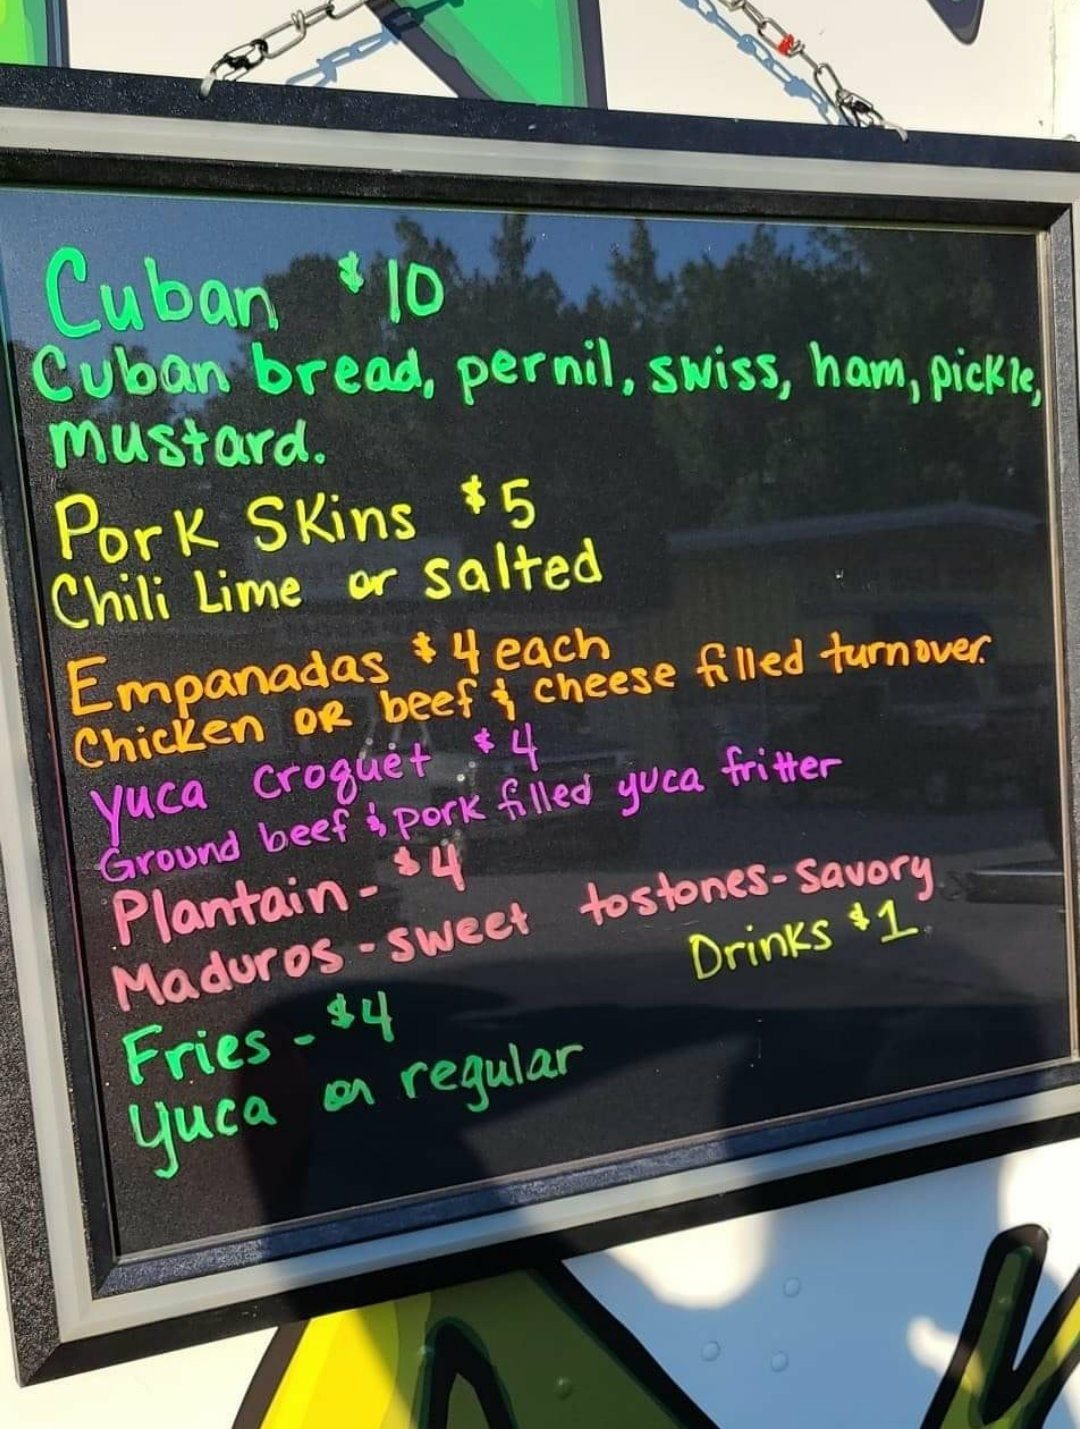 Cuban $10
Cuban bread, pernil, swiss, ham, pickle,
mustard.
Pork Skins $5
Chili Lime or salted
Empanadas $4 each
Chicken OR beef & cheese filled turnover.
Yuca Croquet $4
Ground beef & pork filled yuca fritter
Plantain - $4
Maduros - sweet tostones - savory
Drinks $1
Fries - $4
Yuca or regular